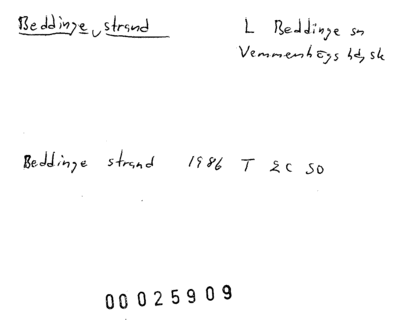 Beddinge strand
L Beddinge sn
Vemmenhögs hd, sk
Beddinge strand 1986 T EC SO
00025909